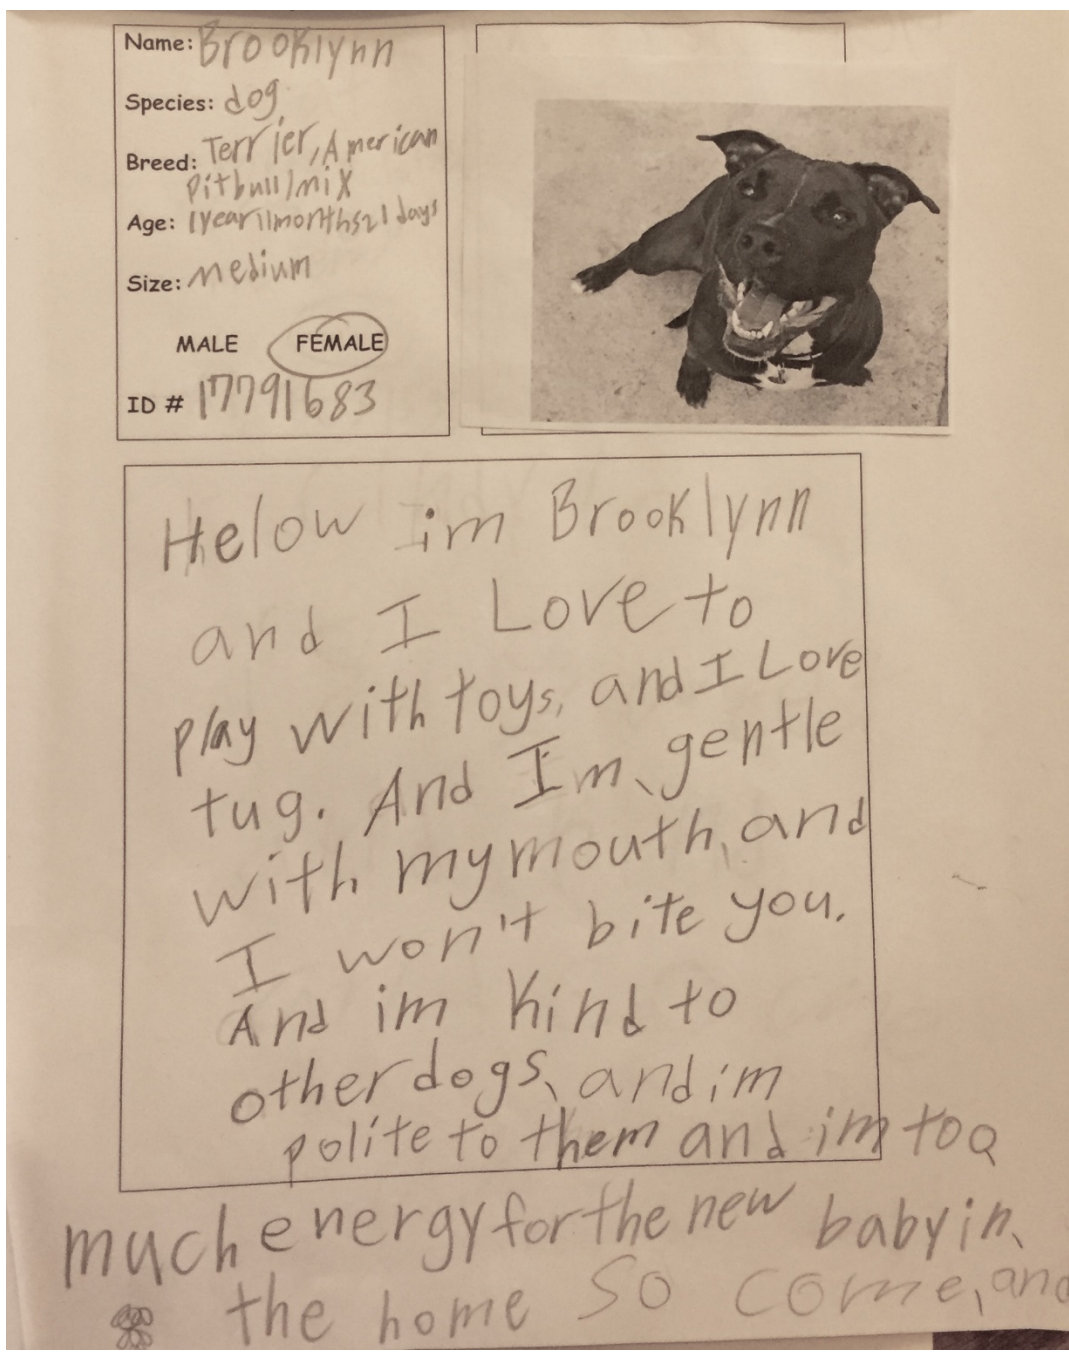 Name: Brooklynn
Species: dog
Breed: Terrier, American
Pitbull/mix
Age: 1year11months21days
Size: Medium
MALE FEMALE
ID # 17791683
Helow im Brooklynn
and I Love to
play with toys, and I Love
tug. And I'm, gentle
with my mouth, and
I won't bite you.
And im kind to
other dogs, and im
polite to them and im too
much energy for the new baby in,
the home So come, and